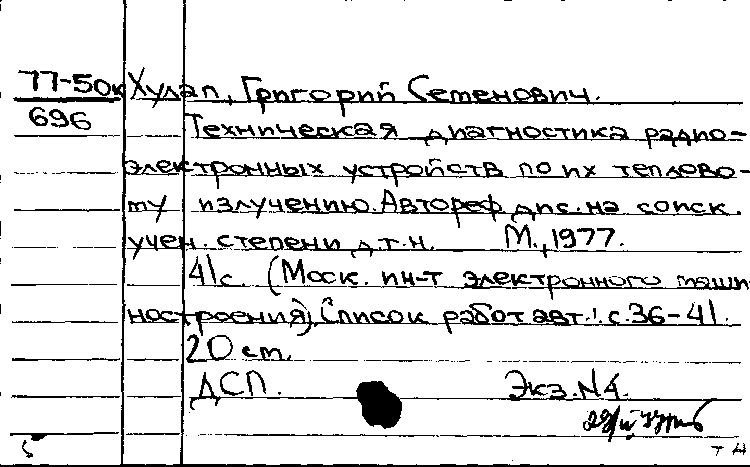 77-50к Хулап, Григорий Семенович.
696
Техническая диагностика радио-
электронных устройств по их теплово-
му излучению. Автореф. дис. на соиск.
учен. степени д.т.н. М., 1977.
41с. (Моск. ин-т электронного маши
ностроения). Список работ авт.: с.36-41.
20 см.
ДСП. Экз. N4.
т н